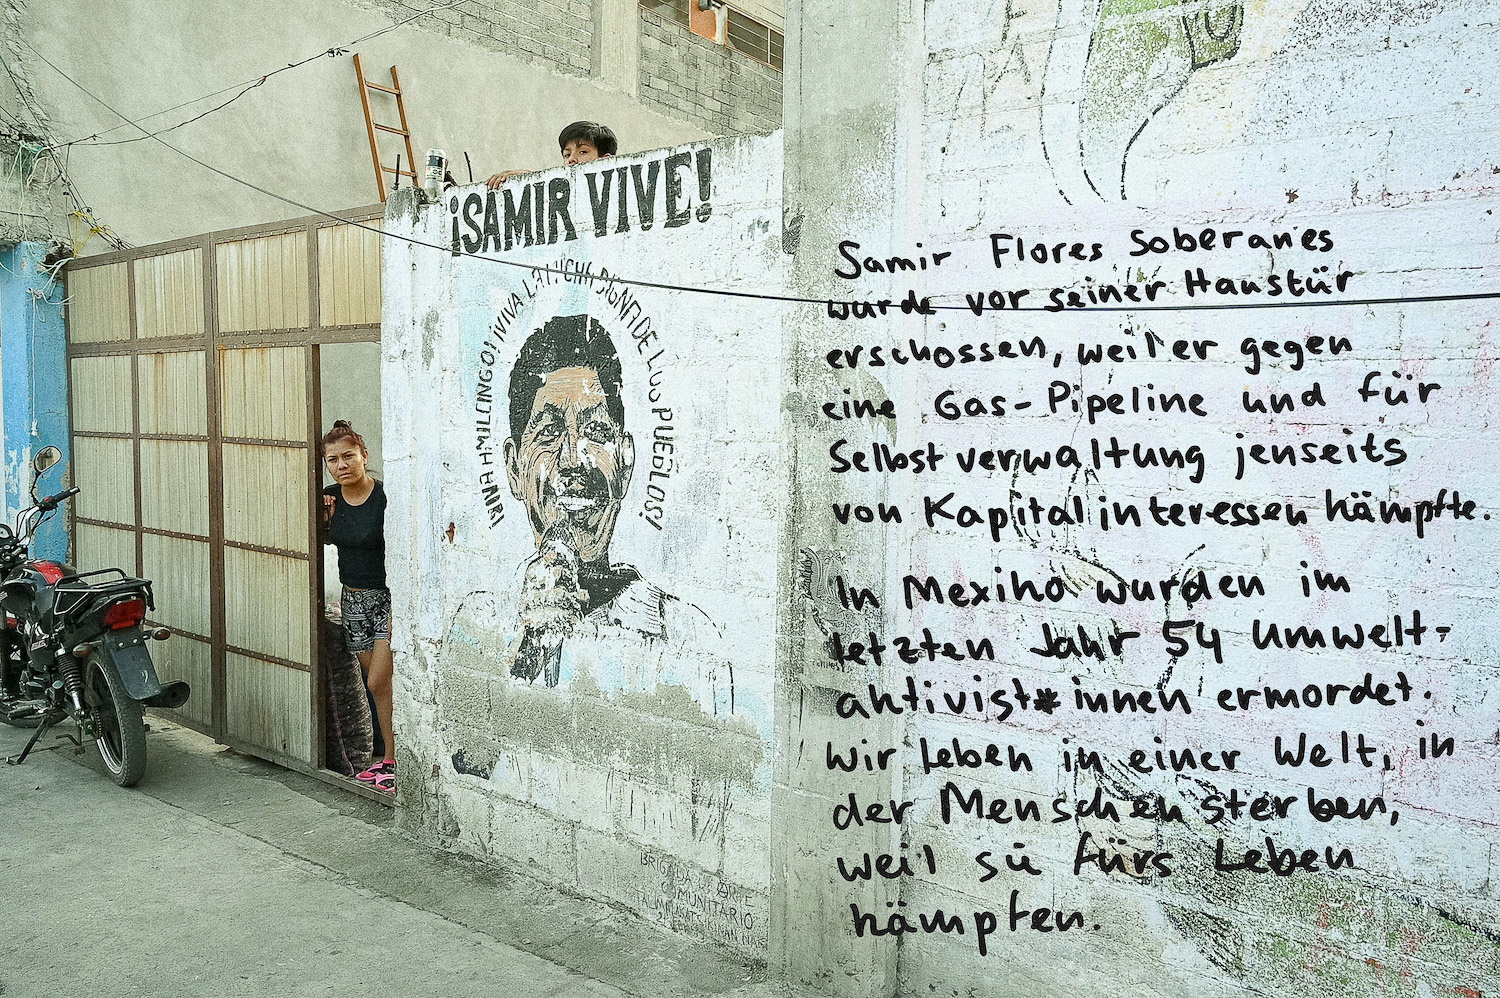 ¡SAMIR VIVE!
¡VIVA LA LUCHA DIGNA DE LOS PUEBLOS!
Samir Flores Soberanes
wurde vor seiner Haustür
erschossen, weil er gegen
eine Gas-Pipeline und für
Selbstverwaltung jenseits
von Kapitalinteressen kämpfte.
In Mexiko wurden im
letzten Jahr 54 Umwelt-
aktivist*innen ermordet.
Wir leben in einer Welt, in
der Menschen sterben,
weil sie fürs Leben
kämpfen.
BRIGADA DE ARTE
COMUNITARIO